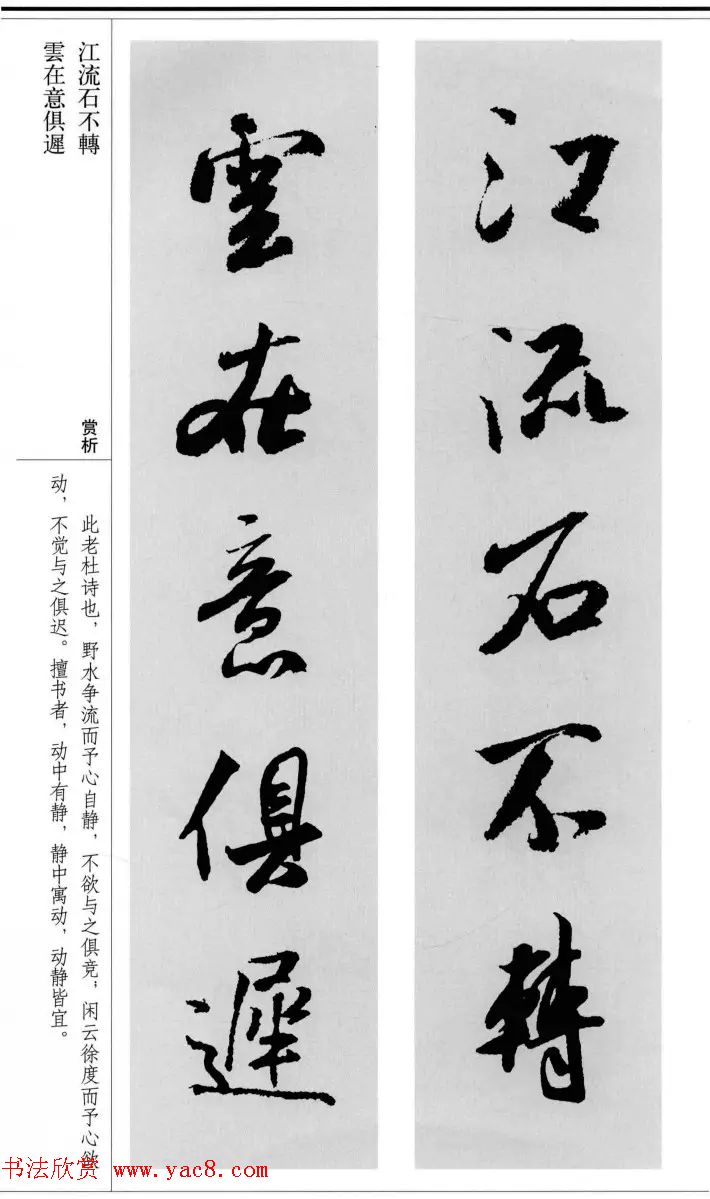 江流石不轉
雲在意俱遲
江流石不轉
雲在意俱遲
赏析
此老杜诗也，野水争流而予心自静，不欲与之俱竞；闲云徐度而予心欲
动，不觉与之俱迟。擅书者，动中有静，静中寓动，动静皆宜。
书法欣赏 www.yac8.com